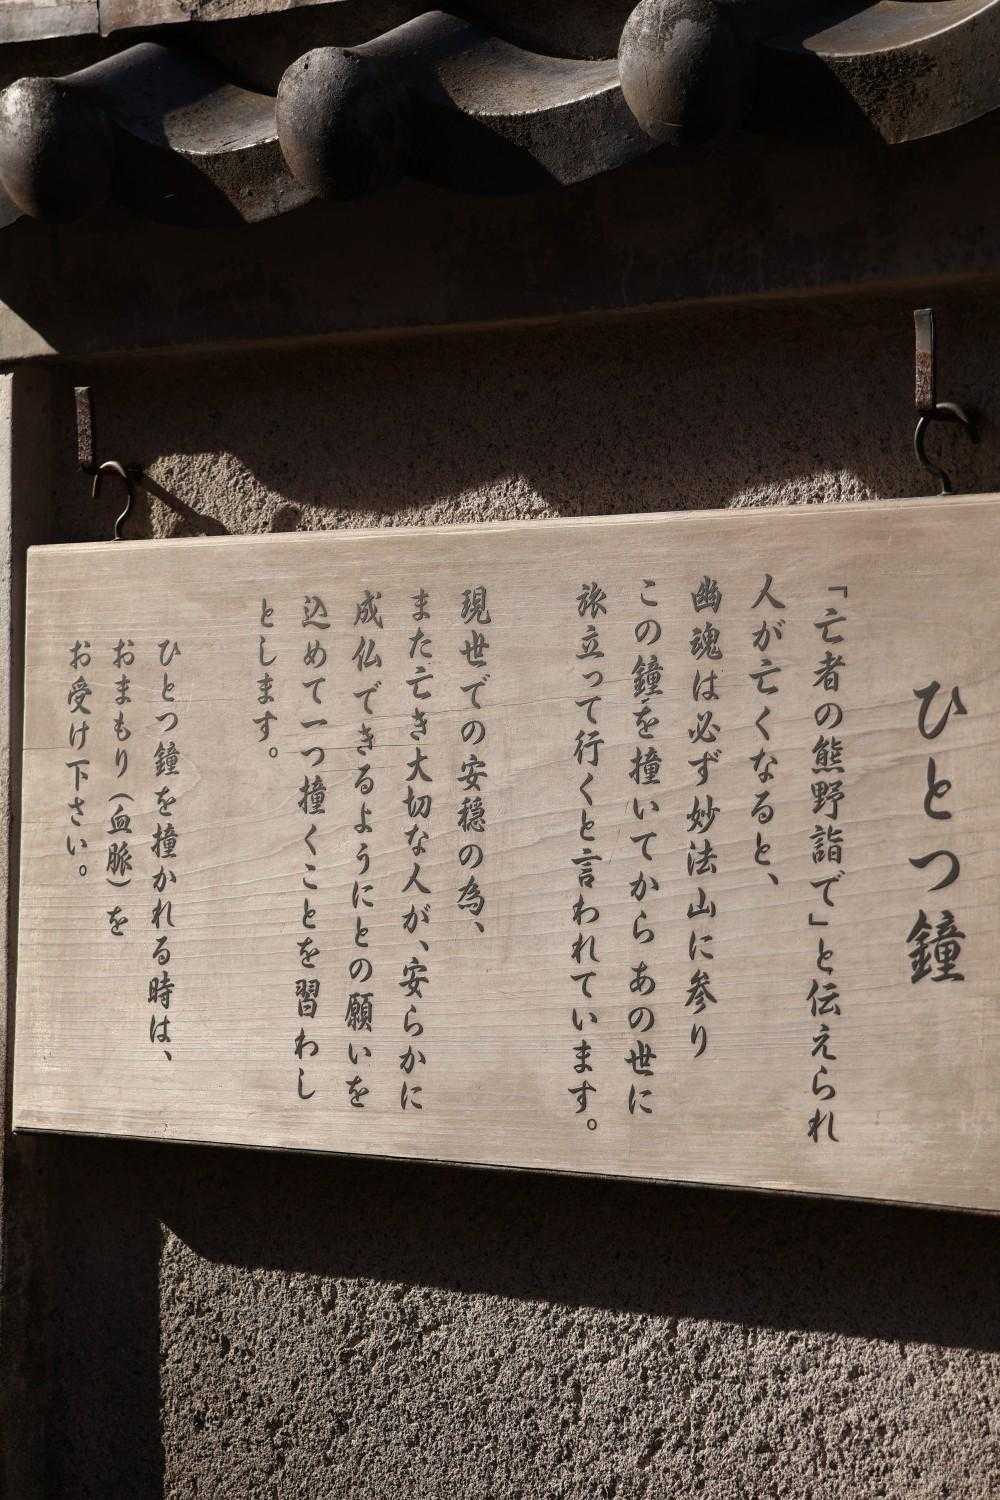 ひとつ鐘
「亡者の熊野詣で」と伝えられ
人が亡くなると、
幽魂は必ず妙法山に参り
この鐘を撞いてから あの世に
旅立って行くと言われています。
現世での安穏の為、
また亡き大切な人が、安らかに
成仏できるようにとの願いを
込めて一つ撞くことを習わし
とします。
ひとつ鐘を撞かれる時は、
おまもり（血脈）を
お受け下さい。